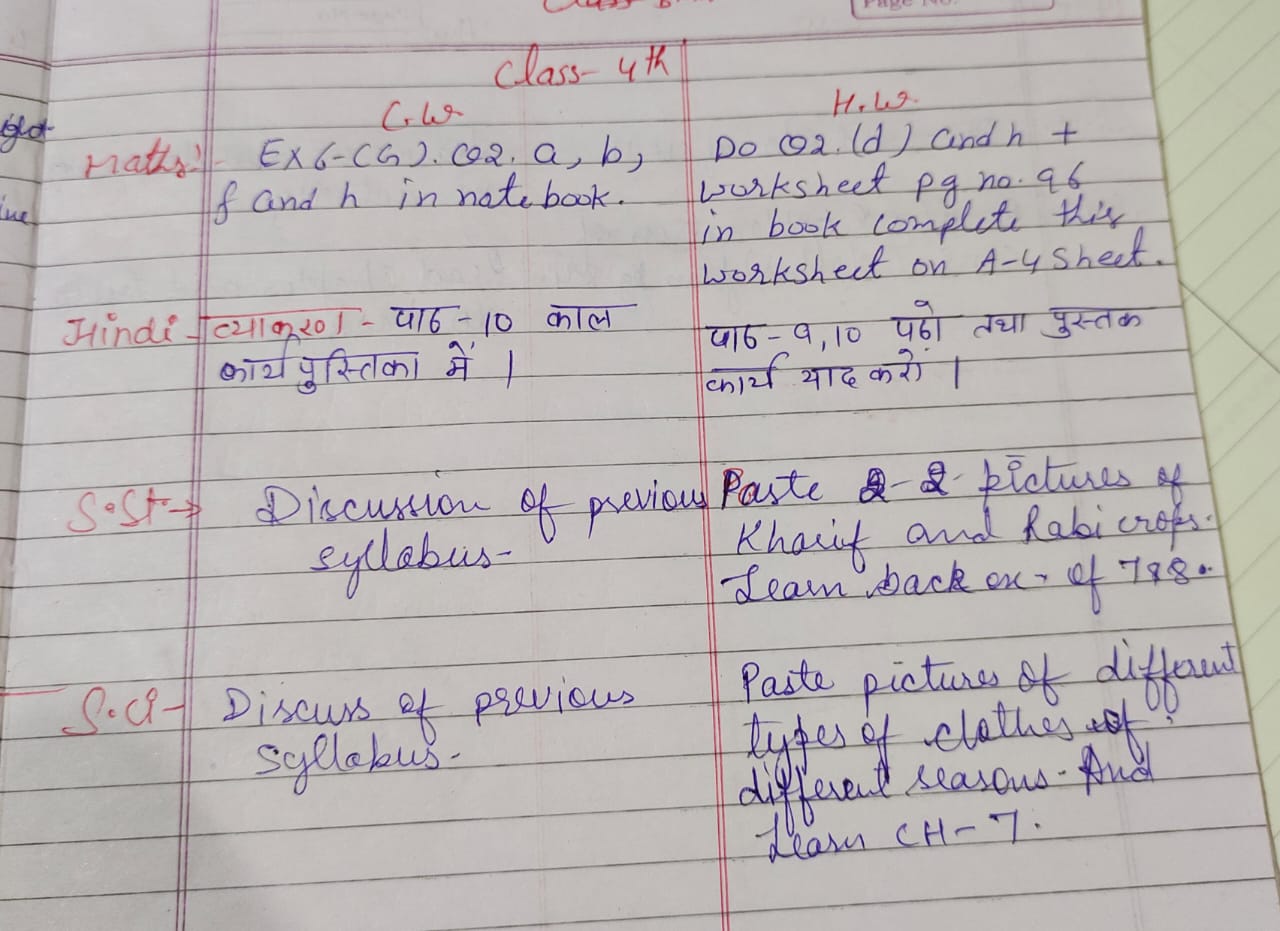 Page No.
Class- 4th
C.W
H.W.
Maths:- Ex 6-(G). Q2. a, b,
f and h in notebook.
Do Q2. (d) and h +
worksheet pg no. 96
in book complete this
worksheet on A-4 Sheet.
Hindi - व्याकरण - पाठ - 10 काल
कार्य पुस्तिका में ।
पाठ - 9, 10 पढो तथा पुस्तक
कार्य याद करो ।
S.St → Discussion of previous
syllabus-
Paste 2-2- pictures of
Kharif and Rabi crops.
Learn back ex- of 7&8.
S.Ci - Discuss of previous
syllabus-
Paste pictures of different
types of clothes of
different seasons- And
Learn CH-7.